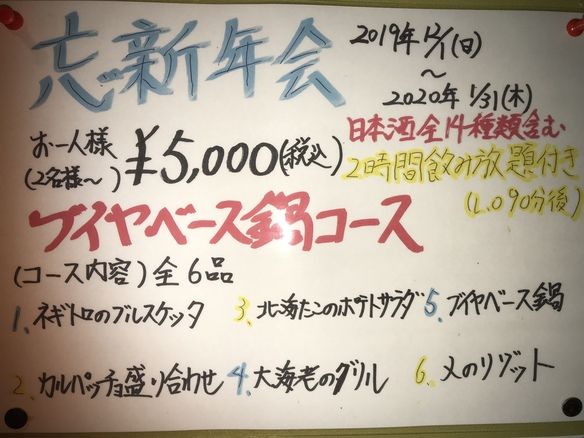 忘新年会
2019年12/1(日)
～
2020年1/31(木)
お一人様
(2名様～)
¥5,000(税込)
日本酒全14種類含む
2時間飲み放題付き
(L.O 90分後)
ブイヤベース鍋コース
(コース内容)全6品
1. ネギトロのブルスケッタ
3. 北海たこのポテトサラダ
5. ブイヤベース鍋
2. カルパッチョ盛り合わせ
4. 大海老のグリル
6. 〆のリゾット